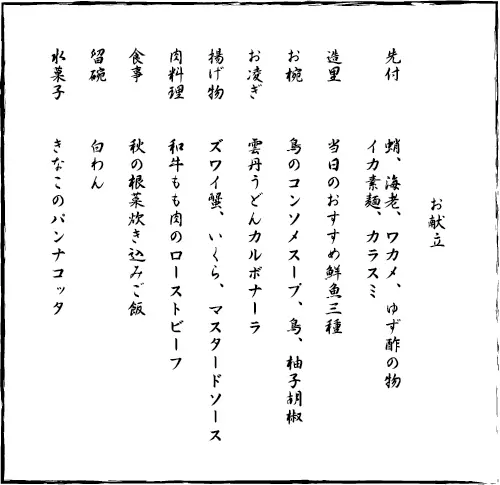 お献立
先付　蛸、海老、ワカメ、ゆず酢の物
イカ素麺、カラスミ
造里　当日のおすすめ鮮魚三種
お椀　鳥のコンソメスープ、鳥、柚子胡椒
お凌ぎ　雲丹うどんカルボナーラ
揚げ物　ズワイ蟹、いくら、マスタードソース
肉料理　和牛もも肉のローストビーフ
食事　秋の根菜炊き込みご飯
留碗　白わん
水菓子　きなこのパンナコッタ